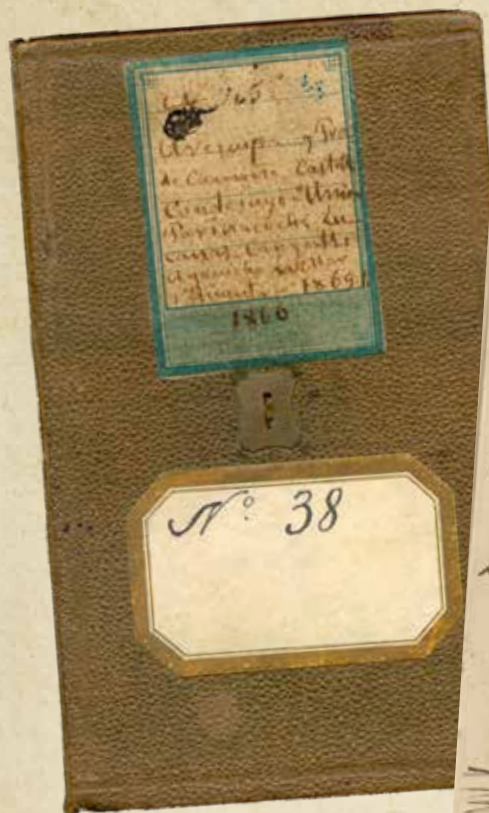 Arequipa y Prov
de Camaná Castill
Condesuyos Union
Parinacochas Lu
canas Cangallo
Ayacucho
Huanta 1869
1860
Nº 38